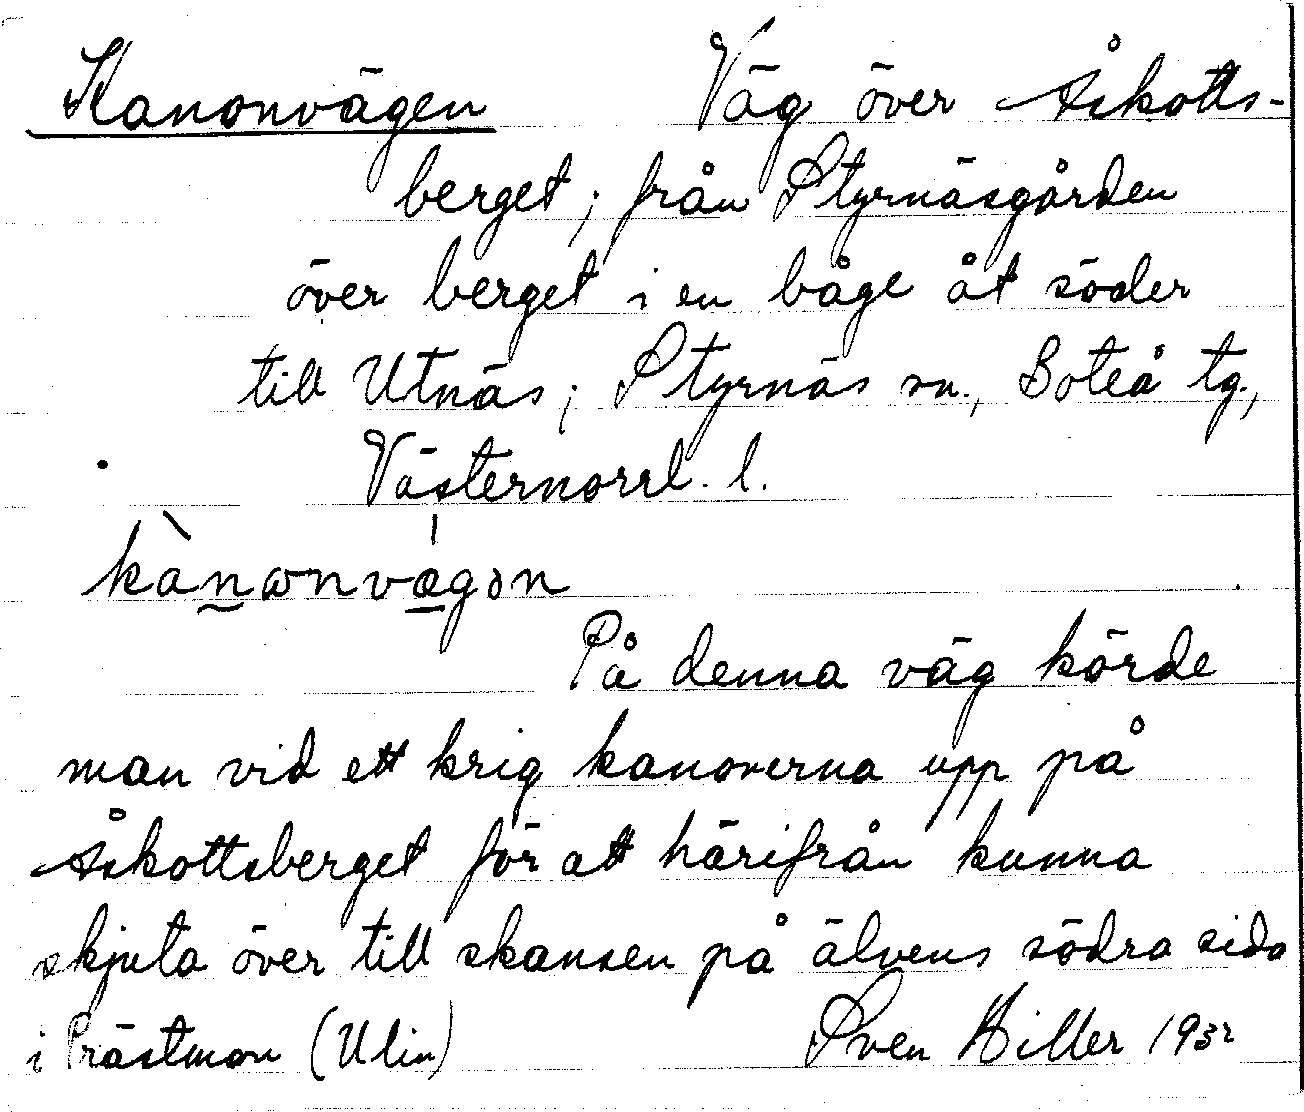 Kanonvägen Väg över Åskotts-
berget; från Styrnäsgården
över berget i en båge åt söder
till Utnäs; Styrnäs sn., Boteå tg.,
Västernorrl. l.
kànωnvǽgən
På denna väg körde
man vid ett krig kanonerna upp på
Åskottsberget för att härifrån kunna
skjuta över till skansen på älvens södra sida
i Prästmon (Ulin) Sven Hiller 1932